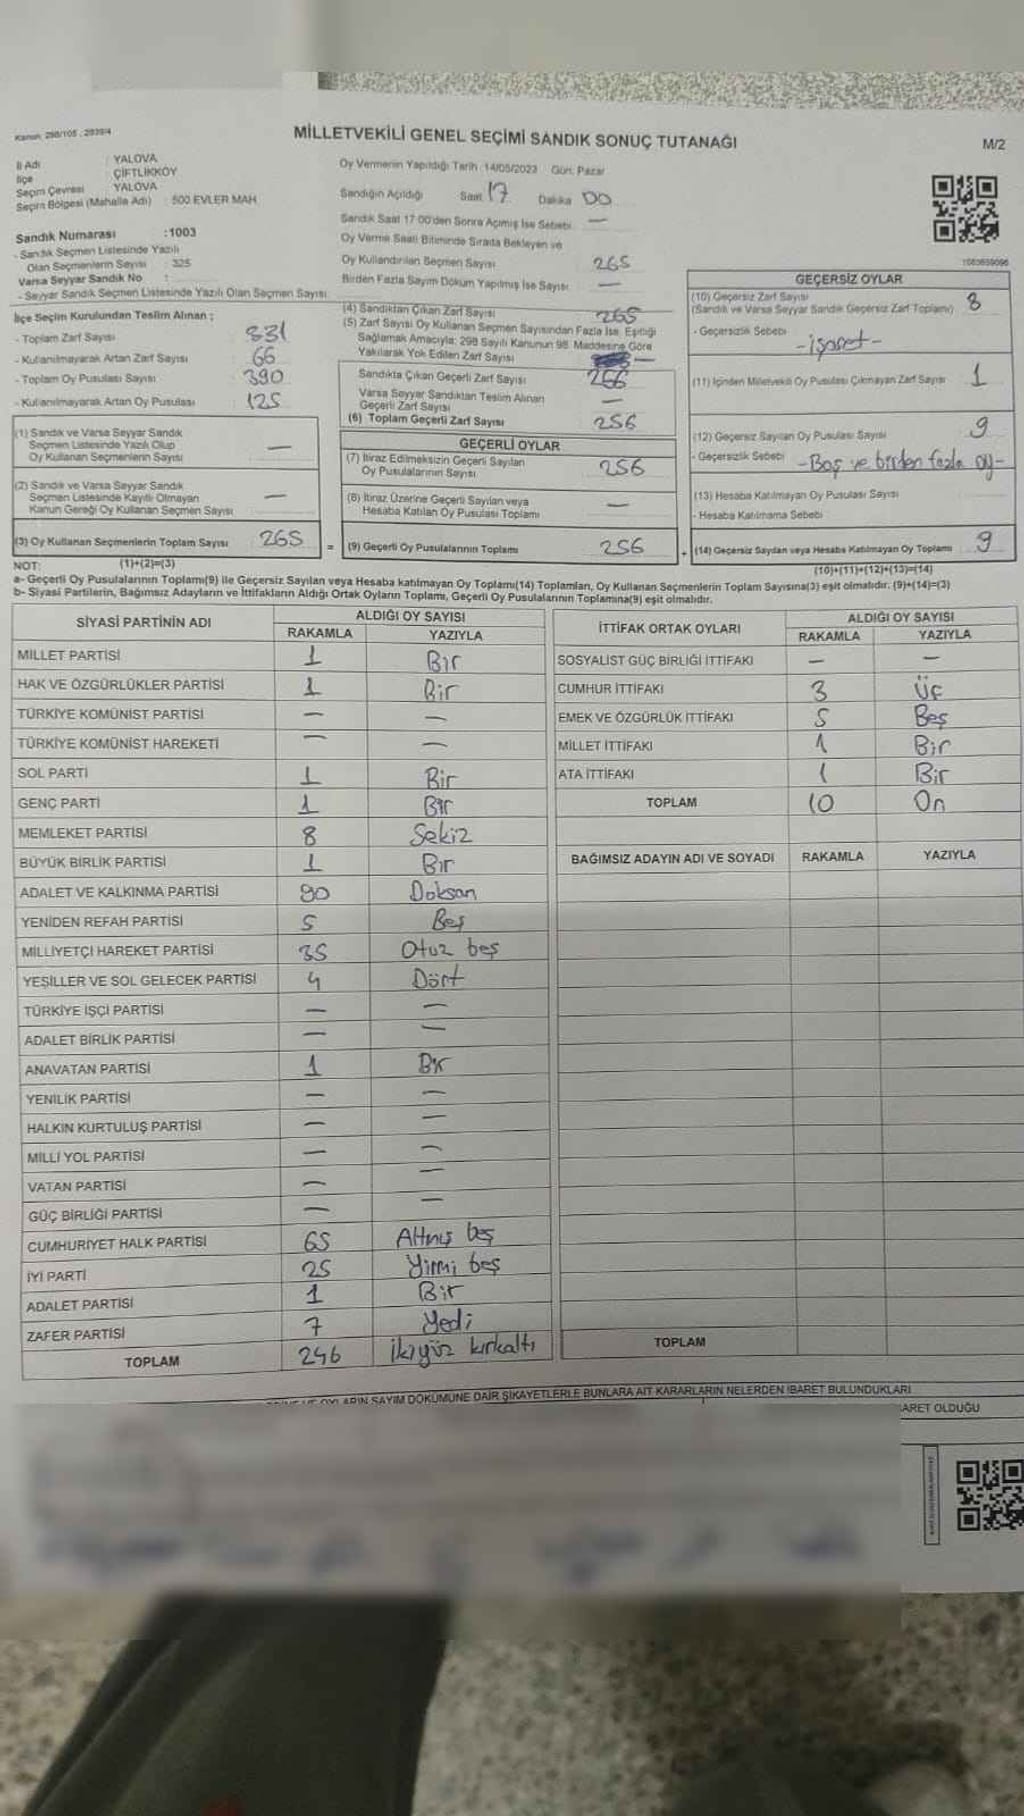 Kanun: 298/105 , 2839/4
MİLLETVEKİLİ GENEL SEÇİMİ SANDIK SONUÇ TUTANAĞI
M/2
İl Adı : YALOVA
İlçe : ÇİFTLİKKÖY
Seçim Çevresi : YALOVA
Seçim Bölgesi (Mahalle Adı) : 500 EVLER MAH.
Sandık Numarası :1003
- Sandık Seçmen Listesinde Yazılı
Olan Seçmenlerin Sayısı : 325
Varsa Seyyar Sandık No :
- Seyyar Sandık Seçmen Listesinde Yazılı Olan Seçmen Sayısı:
İlçe Seçim Kurulundan Teslim Alınan ;
- Toplam Zarf Sayısı 331
- Kullanılmayarak Artan Zarf Sayısı 66
- Toplam Oy Pusulası Sayısı 390
- Kullanılmayarak Artan Oy Pusulası 125
(1) Sandık ve Varsa Seyyar Sandık
Seçmen Listesinde Yazılı Olup
Oy Kullanan Seçmenlerin Sayısı —
(2) Sandık ve Varsa Seyyar Sandık
Seçmen Listesinde Kayıtlı Olmayan
Kanun Gereği Oy Kullanan Seçmen Sayısı —
(3) Oy Kullanan Seçmenlerin Toplam Sayısı 265
Oy Vermenin Yapıldığı Tarih :14/05/2023 Gün: Pazar
Sandığın Açıldığı Saat 17 Dakika 00
Sandık Saat 17:00'den Sonra Açılmış İse Sebebi —
Oy Verme Saati Bitiminde Sırada Bekleyen ve
Oy Kullandırılan Seçmen Sayısı 265
Birden Fazla Sayım Döküm Yapılmış İse Sayısı —
(4) Sandıktan Çıkan Zarf Sayısı 265
(5) Zarf Sayısı Oy Kullanan Seçmen Sayısından Fazla İse, Eşitliği
Sağlamak Amacıyla; 298 Sayılı Kanunun 98. Maddesine Göre
Yakılarak Yok Edilen Zarf Sayısı —
Sandıkta Çıkan Geçerli Zarf Sayısı 256
Varsa Seyyar Sandıktan Teslim Alınan
Geçerli Zarf Sayısı —
(6) Toplam Geçerli Zarf Sayısı 256
GEÇERLİ OYLAR
(7) İtiraz Edilmeksizin Geçerli Sayılan
Oy Pusulalarının Sayısı 256
(8) İtiraz Üzerine Geçerli Sayılan veya
Hesaba Katılan Oy Pusulası Toplamı —
= (9) Geçerli Oy Pusulalarının Toplamı 256
GEÇERSİZ OYLAR
(10) Geçersiz Zarf Sayısı
(Sandık ve Varsa Seyyar Sandık Geçersiz Zarf Toplamı) 8
- Geçersizlik Sebebi
-işaret-
(11) İçinden Milletvekili Oy Pusulası Çıkmayan Zarf Sayısı 1
(12) Geçersiz Sayılan Oy Pusulası Sayısı 9
- Geçersizlik Sebebi -Boş ve birden fazla oy-
(13) Hesaba Katılmayan Oy Pusulası Sayısı
- Hesaba Katılmama Sebebi
+ (14) Geçersiz Sayılan veya Hesaba Katılmayan Oy Toplamı 9
NOT: (1)+(2)=(3)
(10)+(11)+(12)+(13)=(14)
a- Geçerli Oy Pusulalarının Toplamı(9) ile Geçersiz Sayılan veya Hesaba katılmayan Oy Toplamı(14) Toplamları, Oy Kullanan Seçmenlerin Toplam Sayısına(3) eşit olmalıdır. (9)+(14)=(3)
b- Siyasi Partilerin, Bağımsız Adayların ve İttifakların Aldığı Ortak Oyların Toplamı, Geçerli Oy Pusulalarının Toplamına(9) eşit olmalıdır.
SİYASİ PARTİNİN ADI ALDIĞI OY SAYISI
RAKAMLA YAZIYLA
MİLLET PARTİSİ 1 Bir
HAK VE ÖZGÜRLÜKLER PARTİSİ 1 Bir
TÜRKİYE KOMÜNİST PARTİSİ — —
TÜRKİYE KOMÜNİST HAREKETİ — —
SOL PARTİ 1 Bir
GENÇ PARTİ 1 Bir
MEMLEKET PARTİSİ 8 Sekiz
BÜYÜK BİRLİK PARTİSİ 1 Bir
ADALET VE KALKINMA PARTİSİ 90 Doksan
YENİDEN REFAH PARTİSİ 5 Beş
MİLLİYETÇİ HAREKET PARTİSİ 35 Otuz beş
YEŞİLLER VE SOL GELECEK PARTİSİ 4 Dört
TÜRKİYE İŞÇİ PARTİSİ — —
ADALET BİRLİK PARTİSİ — —
ANAVATAN PARTİSİ 1 Bir
YENİLİK PARTİSİ — —
HALKIN KURTULUŞ PARTİSİ — —
MİLLİ YOL PARTİSİ — —
VATAN PARTİSİ — —
GÜÇ BİRLİĞİ PARTİSİ — —
CUMHURİYET HALK PARTİSİ 65 Altmış beş
İYİ PARTİ 25 Yirmi beş
ADALET PARTİSİ 1 Bir
ZAFER PARTİSİ 7 Yedi
TOPLAM 246 İkiyüz kırkaltı
İTTİFAK ORTAK OYLARI ALDIĞI OY SAYISI
RAKAMLA YAZIYLA
SOSYALİST GÜÇ BİRLİĞİ İTTİFAKI — —
CUMHUR İTTİFAKI 3 Üç
EMEK VE ÖZGÜRLÜK İTTİFAKI 5 Beş
MİLLET İTTİFAKI 1 Bir
ATA İTTİFAKI 1 Bir
TOPLAM 10 On
BAĞIMSIZ ADAYIN ADI VE SOYADI RAKAMLA YAZIYLA
TOPLAM
OYLARIN SAYIM DÖKÜMÜNE DAİR ŞİKAYETLERLE BUNLARA AİT KARARLARIN NELERDEN İBARET BULUNDUKLARI
İBARET OLDUĞU